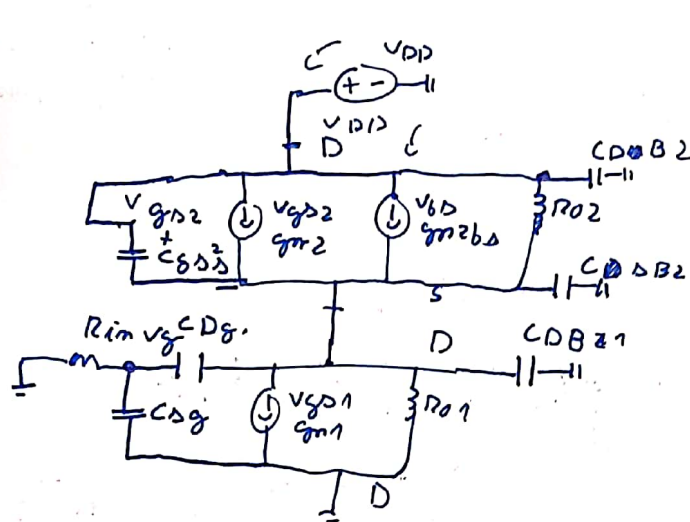 VDD
+ -
VDD
D
CDB2
V
gs2
+
Cgs2
s
vgs2
gm2
vbs
gm2bs
Ro2
CSB2
s
Rin vg CDg.
D
CDB1
Csg
vgs1
gm1
Ro1
D